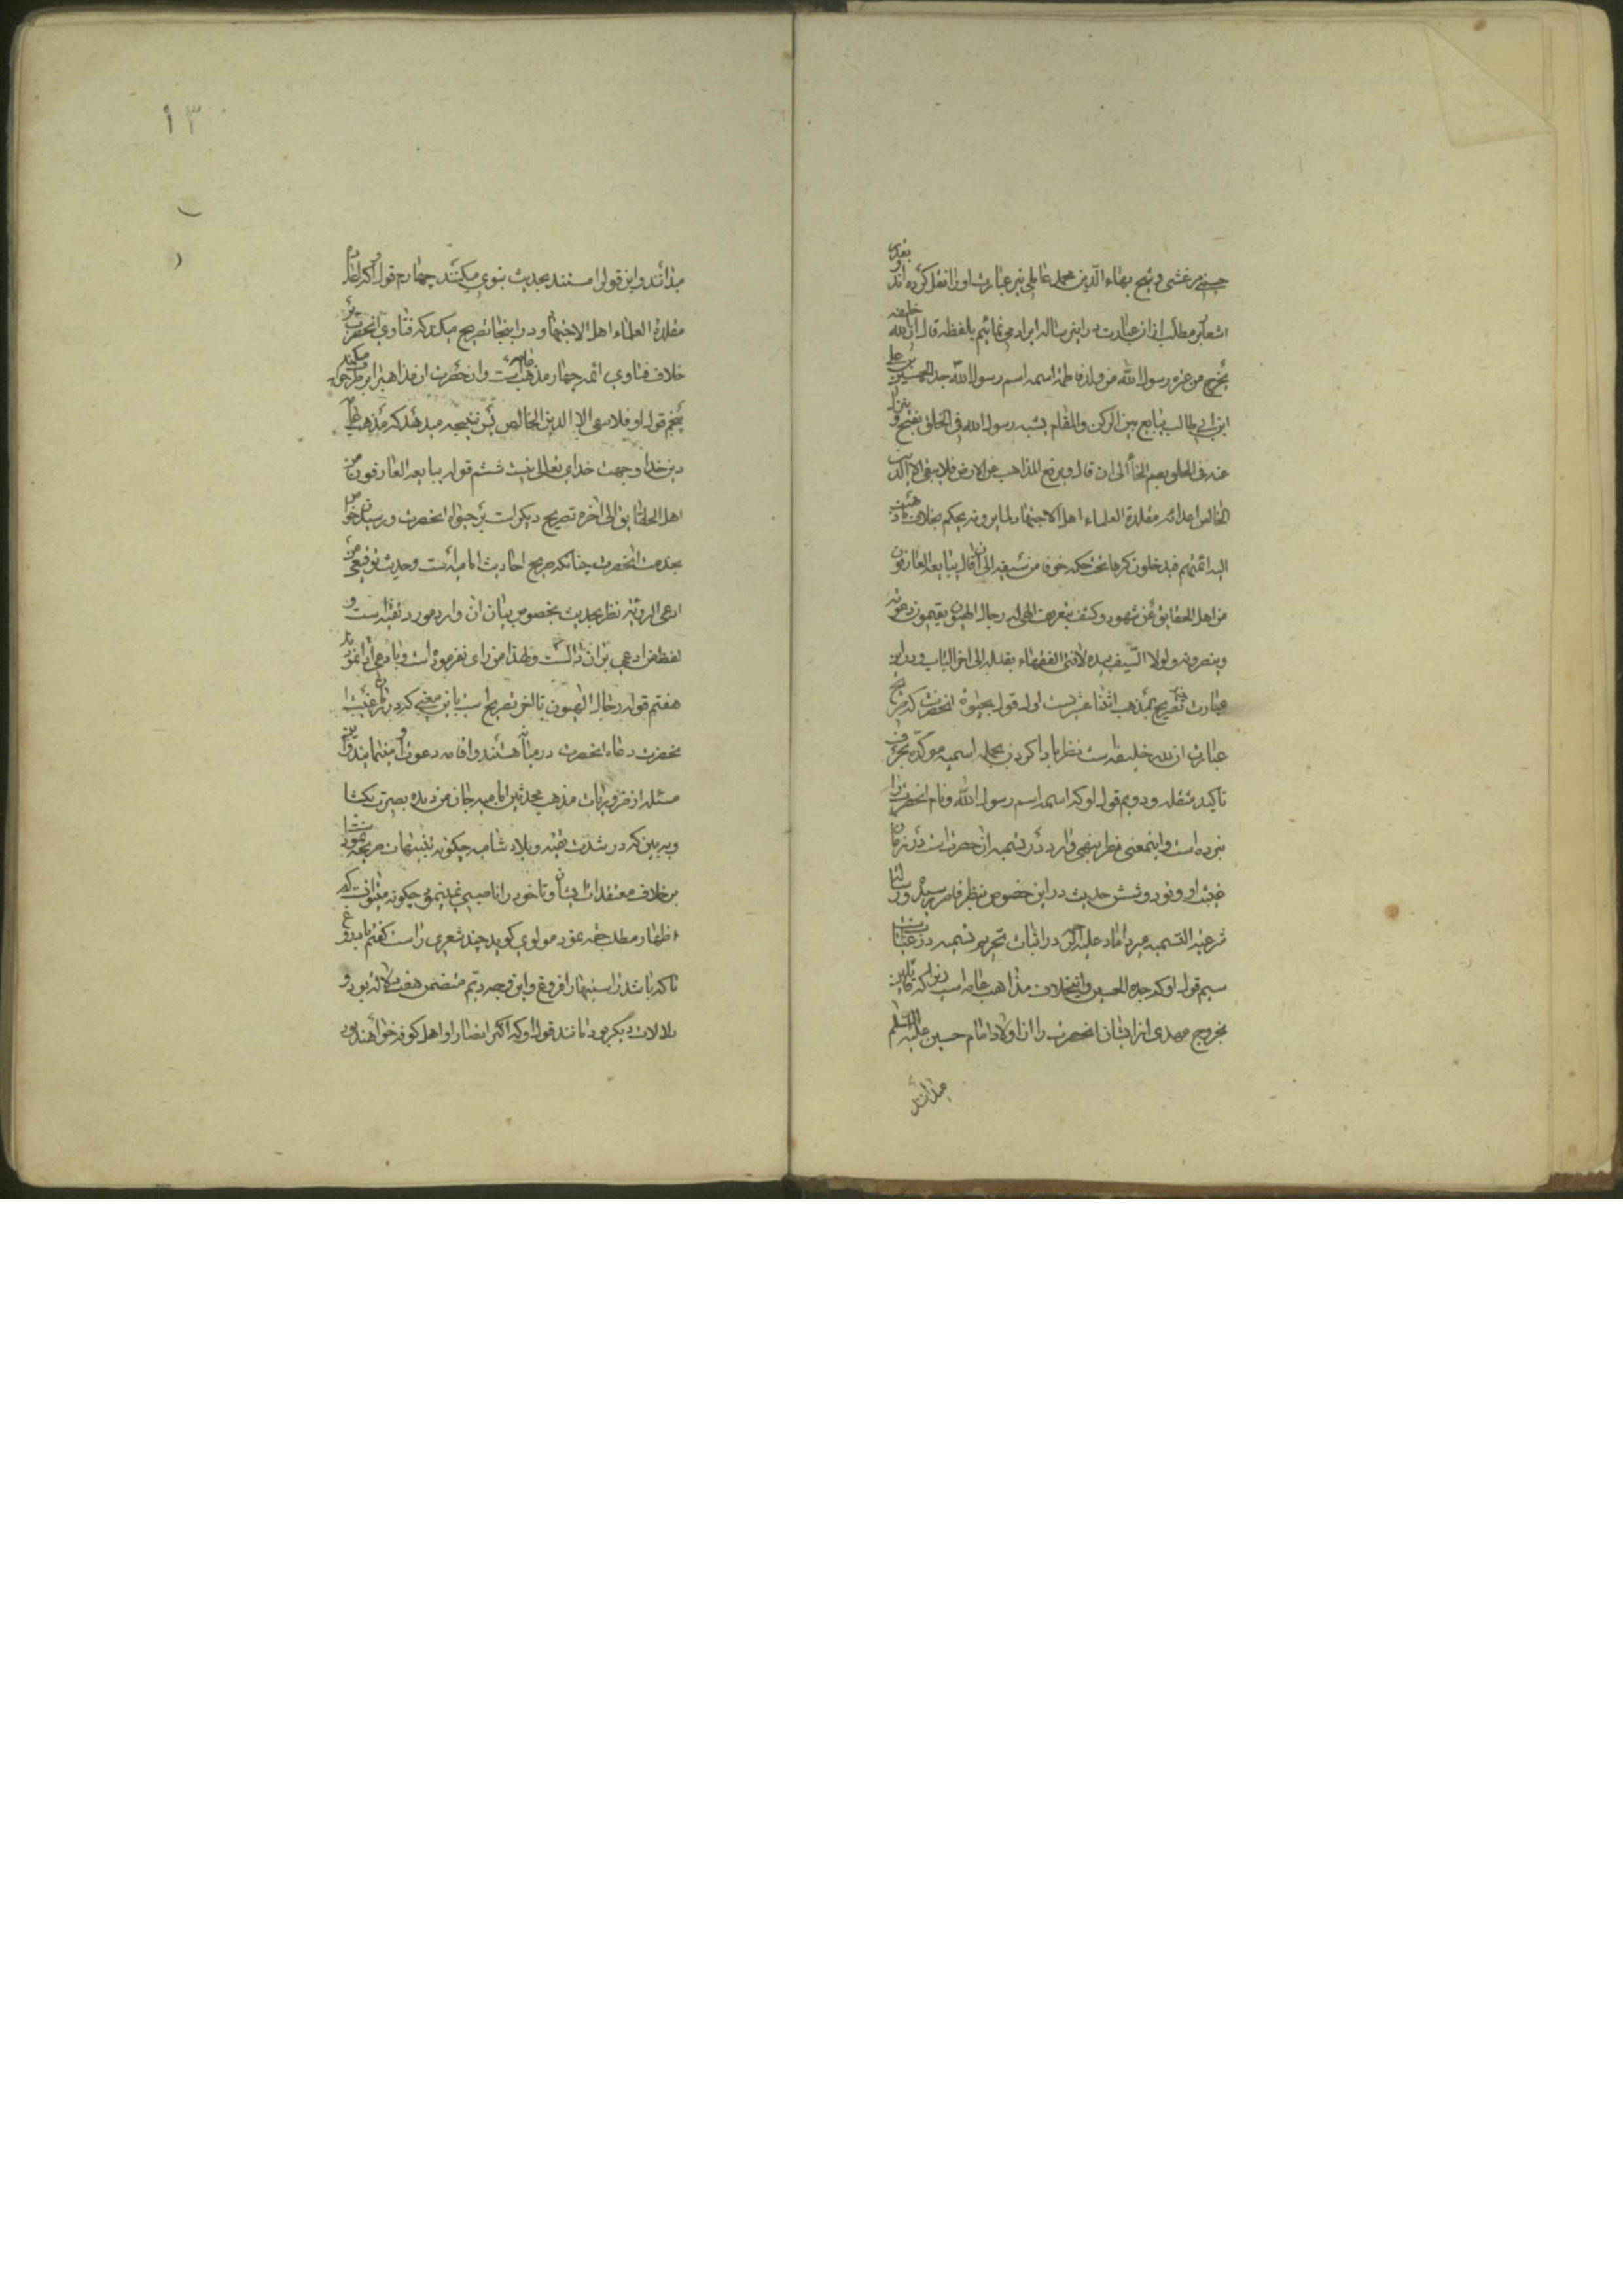 حسینی مرعشی و شیخ بهاء الدین محمد عاملی نیز عبارت او را نقل کرده اند و بقدر
اشعار بر مطلب از ان عبارت در این رساله ایراد می نمائیم بلفظه قال ان لله خلیفه
یخرج من عترة رسول الله من ولد فاطمة اسمه اسم رسول الله جده الحسین بن علی
ابن ابی طالب یبایع بین الرکن والمقام یشبه رسول الله فی الخلق بفتح و ینزل
عنه فی الخلق بضم الخا الی ان قال ویرفع المذاهب عن الارض فلا یبقی الا الدین
الخالص اعدائه مقلدة العلماء اهل الاجتهاد لما یرونه یحکم بخلاف ما ذهبت
الیه ائمتهم فیدخلون کرها تحت حکمه خوفا من سیفه الی ان قال یبایعه العارفون
من اهل الحقایق عن شهود وکشف بتعریف الهی له رجال الهیون یقیمون دعوته
وینصرونه ولولا السیف بیده لافتی الفقهاء بقتله الی اخر الباب و در این
عبارت تصریح بمذهب اثنا عشریست اول قوله بحیوة انحضرت که صریح
عبارت ان لله خلیفه است نظر باداکردن بجمله اسمیه موکده بحرف
تاکید مثقله و دویم قول او که اسمه اسم رسول الله و نام انحضرت را
نبرده است واینمعنی نظر بنهی وارد در تسمیه ان حضرتست در زمان
غیبت او ونود وشش حدیث در این خصوص بنظر قاصر رسیده ورساله
شرعة التسمیه میر داماد علیه الرحمه در اثبات تحریم تسمیه در زمان غیبت است
سیم قول او که جده الحسین واین بخلاف مذاهب عامه است زیرا که قائلین
بخروج مهدی از ایشان انحضرت را از اولاد امام حسن علیه السلم
میدانند
۱۳
میدانند و این قول را مستند بحدیث نبوی میکنند چهارم قول او که اعداءه
مقلدة العلماء اهل الاجتهاد و در اینجا تصریح میکند که فتاوی انحضرت بر
خلاف فتاوی ائمه چهار مذهب عامه است وانحضرت ان مذاهب را بر طرف میکند
پنجم قول او فلا یبقی الا الدین الخالص پس نتیجه میدهد که مذهب عامه
دین خدا وجهت خدای تعالی نیست ششم قوله یبایعه العارفون من
اهل الحقایق الی اخره تصریح دیگر است بر حیوة انحضرت ورسیدن خواص
بخدمت انحضرت چنانکه صریح احادیث امامیه است وحدیث توقیعی من
ادعی الرویة نظر بحدیث بخصوص بیان ان وارد مورد تقیه است و
لفظ من ادعی بر ان دالست ولهذا من رای نفرموده است
هفتم قوله رجال الهیون تا اخر تصریح است باین معنی که در زمان غیبت
بحضرت دعاة انحضرت در میان هستند واقامه دعوت او مینمایند واین
مسئله از ضروریات مذهب محدثین امامیه جان من دیده بصیرت بکشا
وببین که در شدت تقیه وبلاد شامیه چگونه تنبیهات صریحه نموده
بر خلاف معتقدات ایشان وتا خود را ناصبی نمی نمود چگونه میتوانست که
اظهار مطلب حقه نمود مولوی گوید چند شعری راست گفتم با دروغ
تا که باشد راستیها را فروغ واین وجه دیم متضمن هفت دلاله بود و
دلالات دیگر بود مانند قول او که اکثر انصار او اهل کوفه خواهند بود